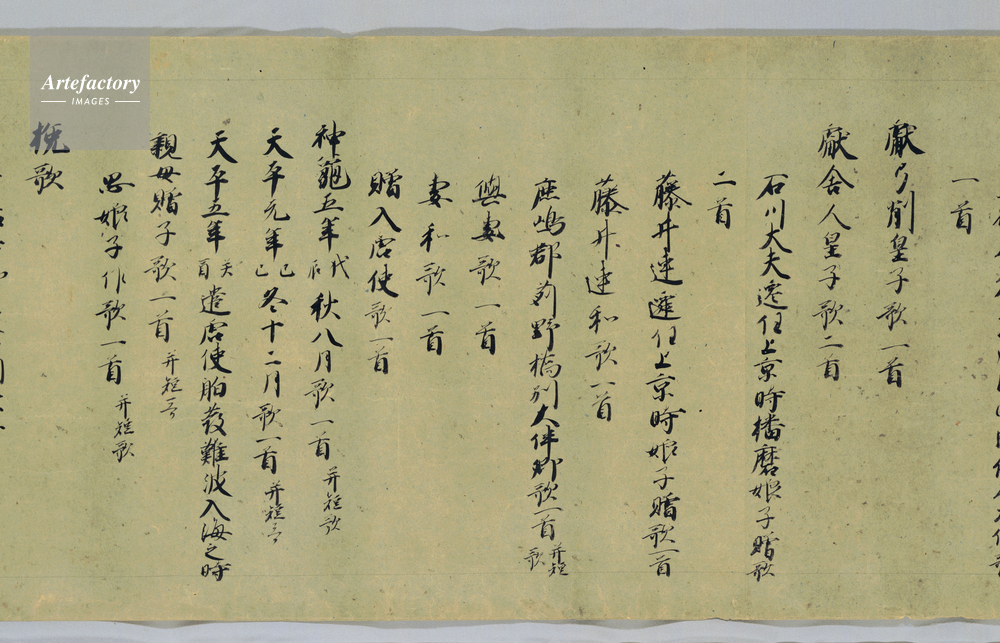 一首
獻弓削皇子歌一首
獻舍人皇子歌二首
石川大夫遷任上京時播磨娘子贈歌
二首
藤井連遷任上京時娘子贈歌一首
藤井連和歌一首
鹿嶋郡苅野橋別大伴卿歌一首 并短歌
與妻歌一首
妻和歌一首
贈入唐使歌一首
神龜五年戊辰秋八月歌一首 并短歌
天平元年己巳冬十二月歌一首 并短哥
天平五年癸酉遣唐使舶發難波入海之時
親母贈子歌一首 并短哥
思娘子作歌一首 并短歌
挽歌
Artefactory
IMAGES